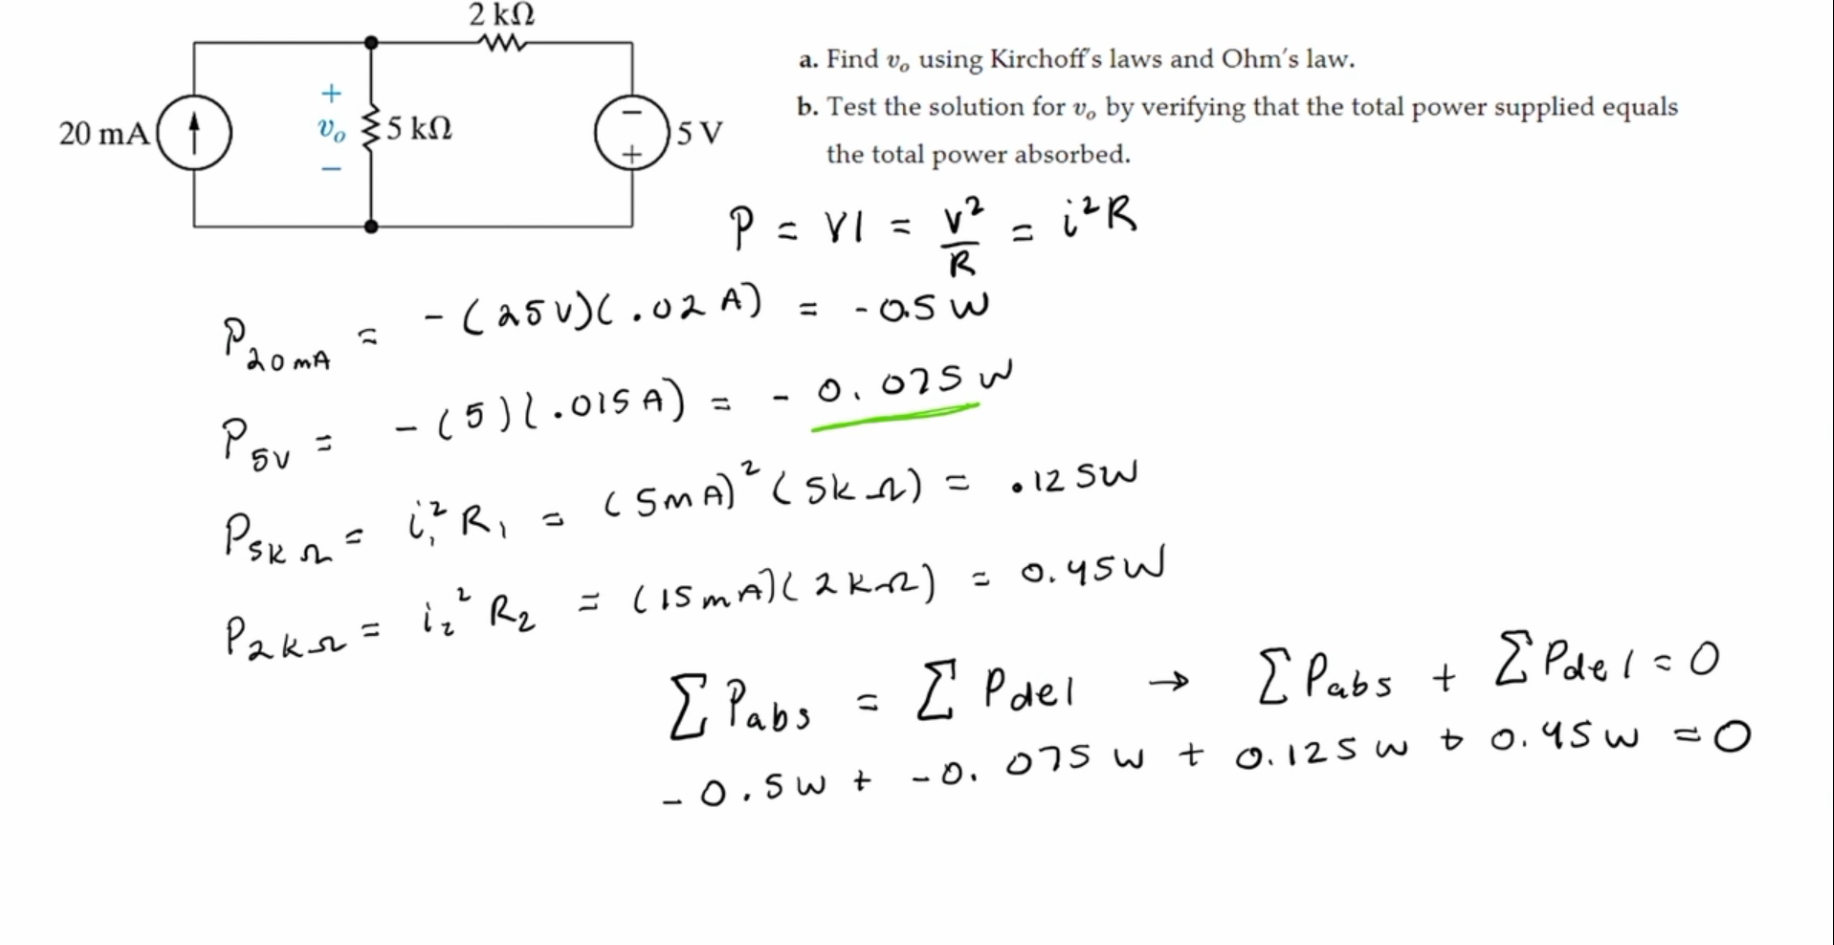 2 kΩ
20 mA
+
v₀
−
5 kΩ
−
+
5 V
a. Find v₀ using Kirchoff's laws and Ohm's law.
b. Test the solution for v₀ by verifying that the total power supplied equals
the total power absorbed.
P = VI = V²/R = i²R
P₂₀ mA = -(25V)(.02 A) = -0.5 W
P₅V = -(5)(.015A) = -0.075 W
P₅kΩ = i₁² R₁ = (5mA)² (5kΩ) = .125W
P₂kΩ = i₂² R₂ = (15mA)(2kΩ) = 0.45W
∑ Pabs = ∑ Pdel → ∑ Pabs + ∑ Pdel = 0
-0.5W + -0.075 W + 0.125 W + 0.45W = 0